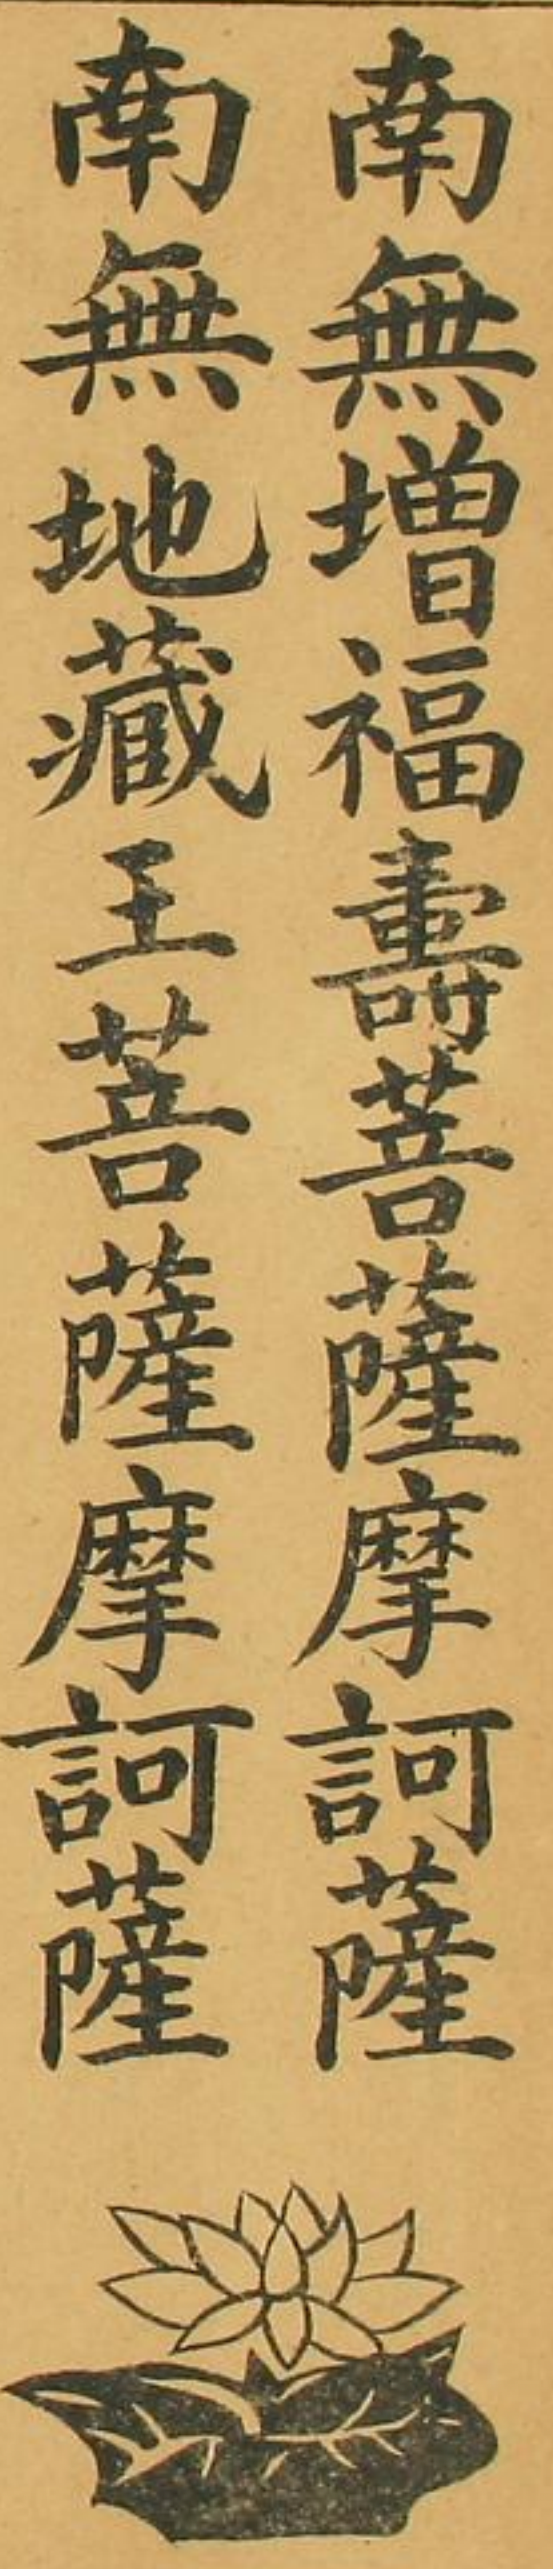 南無增福壽菩薩摩訶薩
南無地藏王菩薩摩訶薩